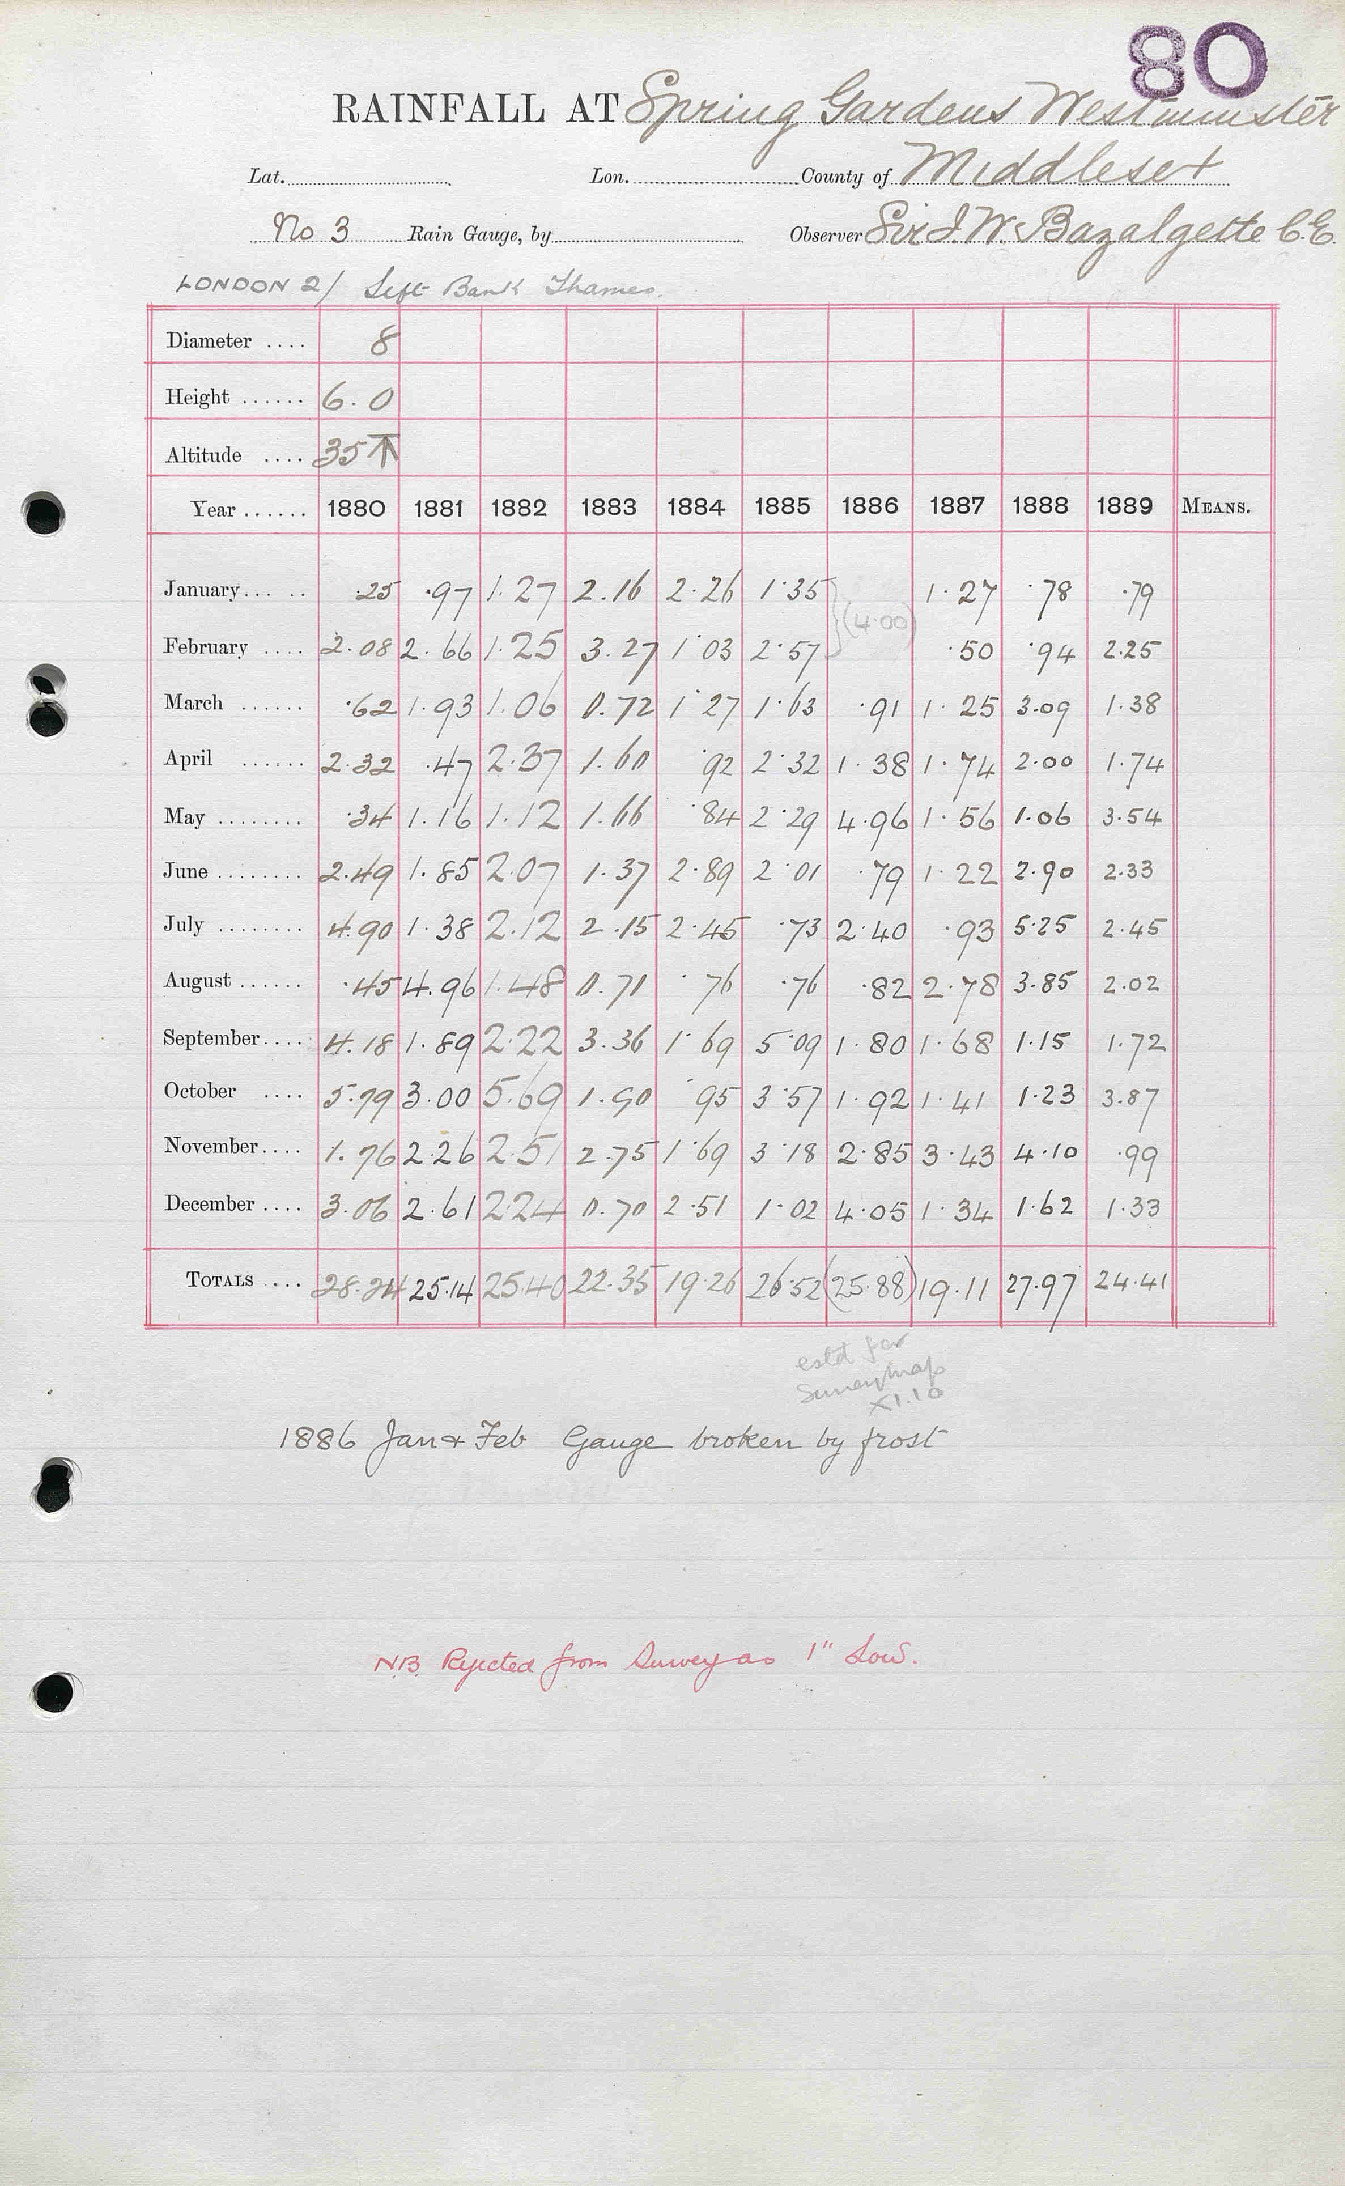 80
RAINFALL AT Spring Gardens Westminster
Lat. Lon. County of Middlesex
No 3 Rain Gauge, by Observer Sir J. W. Bazalgette C.E.
LONDON 2/ Left Bank Thames.
Diameter .... 8
Height ...... 6.0
Altitude .... 35
Year ...... 1880 1881 1882 1883 1884 1885 1886 1887 1888 1889 MEANS.
January... .. .25 .97 1.27 2.16 2.26 1.35 1.27 .78 .79
(4.00)
February .... 2.08 2.66 1.25 3.27 1.03 2.57 .50 .94 2.25
March ...... .62 1.93 1.06 0.72 1.27 1.63 .91 1.25 3.09 1.38
April ...... 2.32 .47 2.37 1.60 .92 2.32 1.38 1.74 2.00 1.74
May ........ .34 1.16 1.12 1.66 .84 2.29 4.96 1.56 1.06 3.54
June ........ 2.49 1.85 2.07 1.37 2.89 2.01 .79 1.22 2.90 2.33
July ........ 4.90 1.38 2.12 2.15 2.45 .73 2.40 .93 5.25 2.45
August ...... .45 4.96 1.48 0.71 .76 .76 .82 2.78 3.85 2.02
September.... 4.18 1.89 2.22 3.36 1.69 5.09 1.80 1.68 1.15 1.72
October .... 5.79 3.00 5.69 1.90 .95 3.57 1.92 1.41 1.23 3.87
November.... 1.76 2.26 2.51 2.75 1.69 3.18 2.85 3.43 4.10 .99
December .... 3.06 2.61 2.24 0.70 2.51 1.02 4.05 1.34 1.62 1.33
TOTALS .... 28.24 25.14 25.40 22.35 19.26 26.52 (25.88) 19.11 27.97 24.41
estd for
Survey map
XI.10
1886 Jan & Feb Gauge broken by frost
N.B. Rejected from Survey as 1" Low.